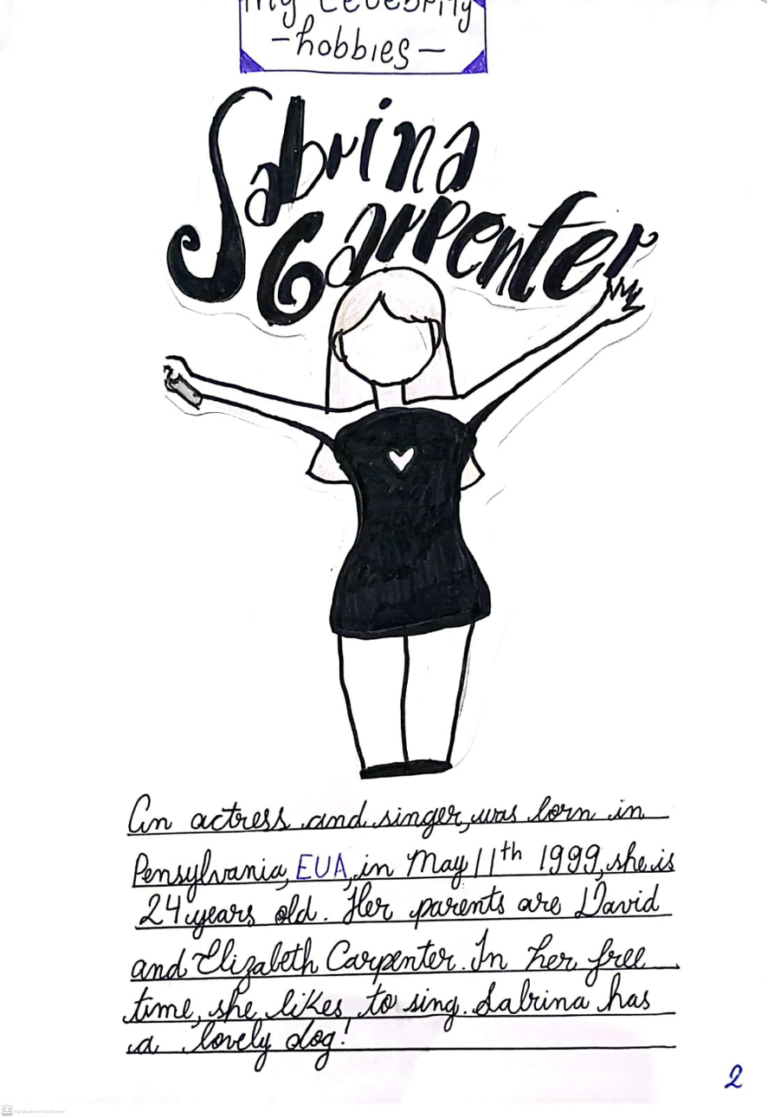 My Celebrity
-hobbies-
Sabrina
Carpenter
An actress and singer, was born in
Pensylvania, EUA, in May 11th 1999, she is
24 years old. Her parents are David
and Elizabeth Carpenter. In her free
time, she likes to sing. Sabrina has
a lovely dog!
2